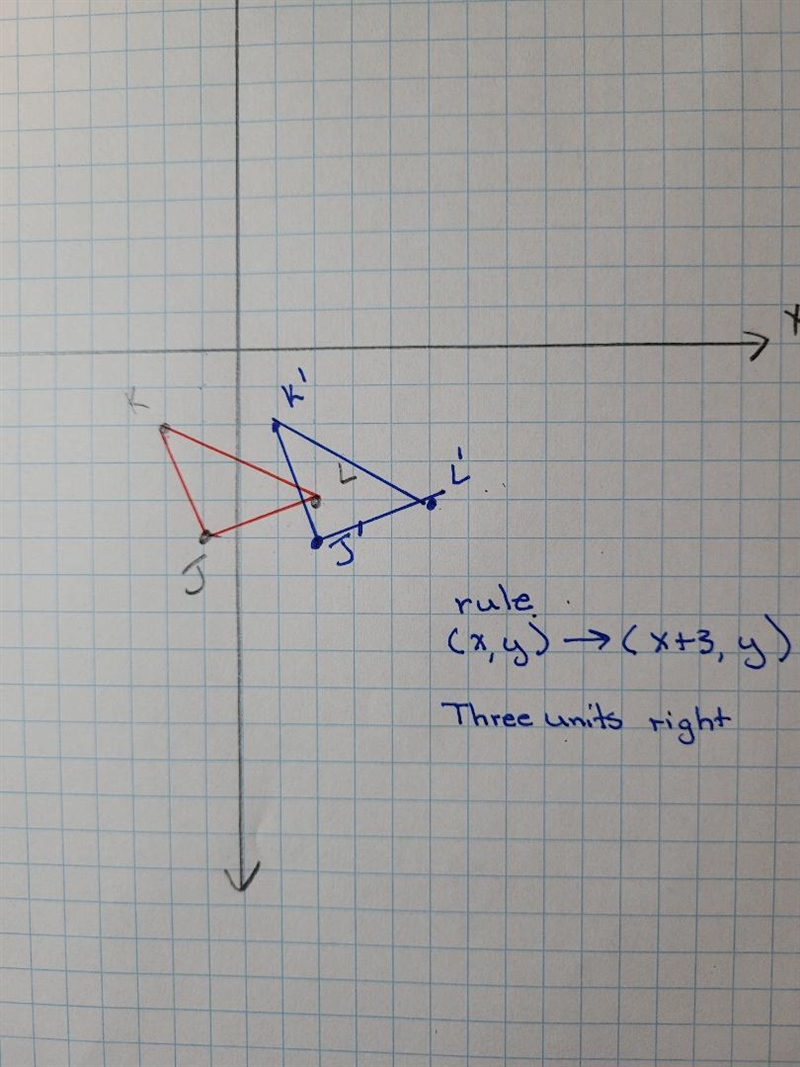 X
K
K'
L
L'
J
J'
rule.
(x,y) → (x+3, y)
Three units right